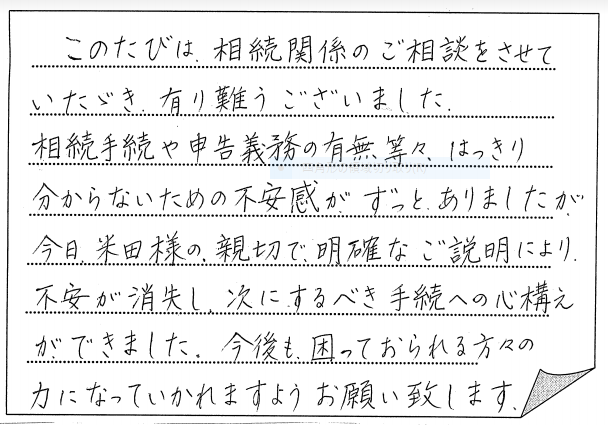 このたびは、相続関係のご相談をさせて
いただき、有り難うございました。
相続手続や申告義務の有無等々、はっきり
分からないための不安感が、ずっと、ありましたが
今日、米田様の、親切で、明確なご説明により、
不安が消失し、次にするべき手続への心構え
ができました。今後も、困っておられる方々の
力になっていかれますようお願い致します。